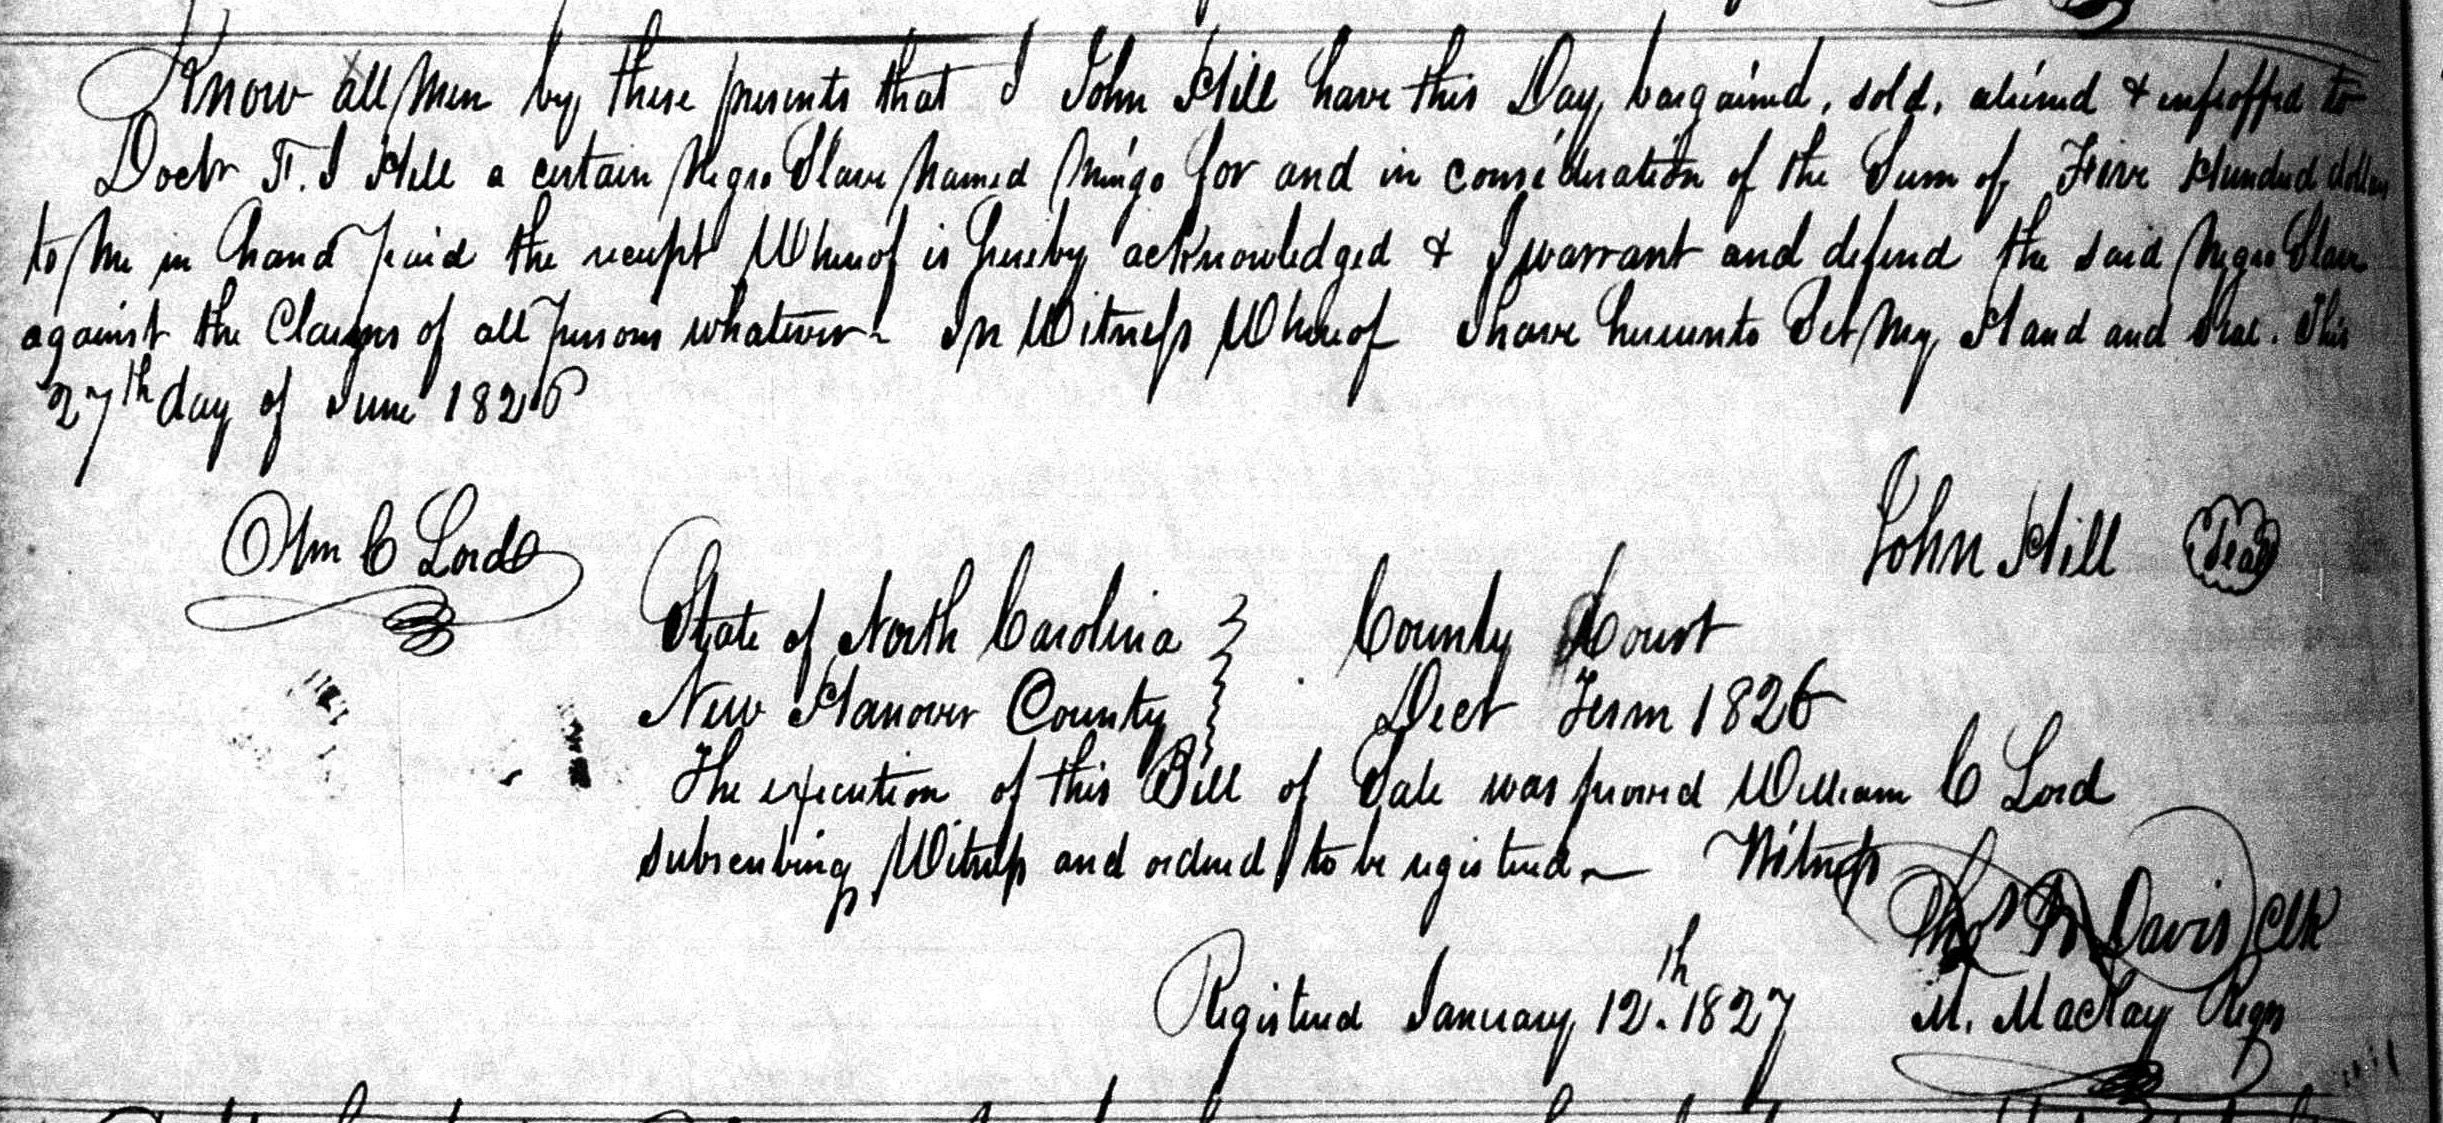 Know all Men by these presents that I John Hill have this Day bargained, sold, aliened & infeoffed to
Doctr F. J Hill a certain Negro Slave Named Mingo for and in consideration of the Sum of Five Hundred dollars
to Me in hand paid the receipt Whereof is hereby acknowledged & I warrant and defend the said Negro Slave
against the Claims of all persons whatever - In Witness Whereof I have hereunto Set My Hand and Seal. This
27th day of June 1826
John Hill Seal
Wm C Lord
State of North Carolina County Court
New Hanover County Dect Term 1826
The execution of this Bill of Sale was proved William C Lord
subscribing Witness and ordered to be registered - Witness
Thos Davis Clk
Registered January 12th. 1827 M. MacKay Regr